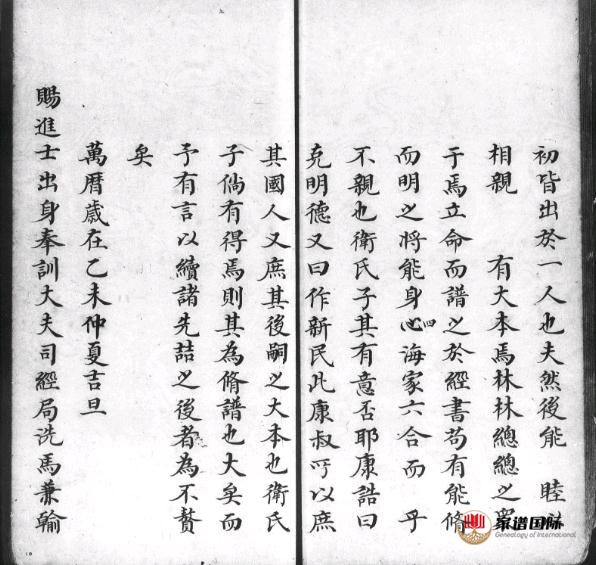 初皆出於一人也夫然後能 睦
相親 有大本焉林林總總之眾
于焉立命而譜之於經書苟有能脩
而明之將能身心四海家六合而 乎
不親也衛氏子其有意否耶康誥曰
克明德又曰作新民此康叔所以庶
其國人又庶其後嗣之大本也衛氏
子倘有得焉則其為脩譜也大矣而
予有言以續諸先喆之後者為不贅
矣
萬曆歲在乙未仲夏吉旦
賜進士出身奉訓大夫司經局洗馬兼翰
家谱国际
Genealogy of International